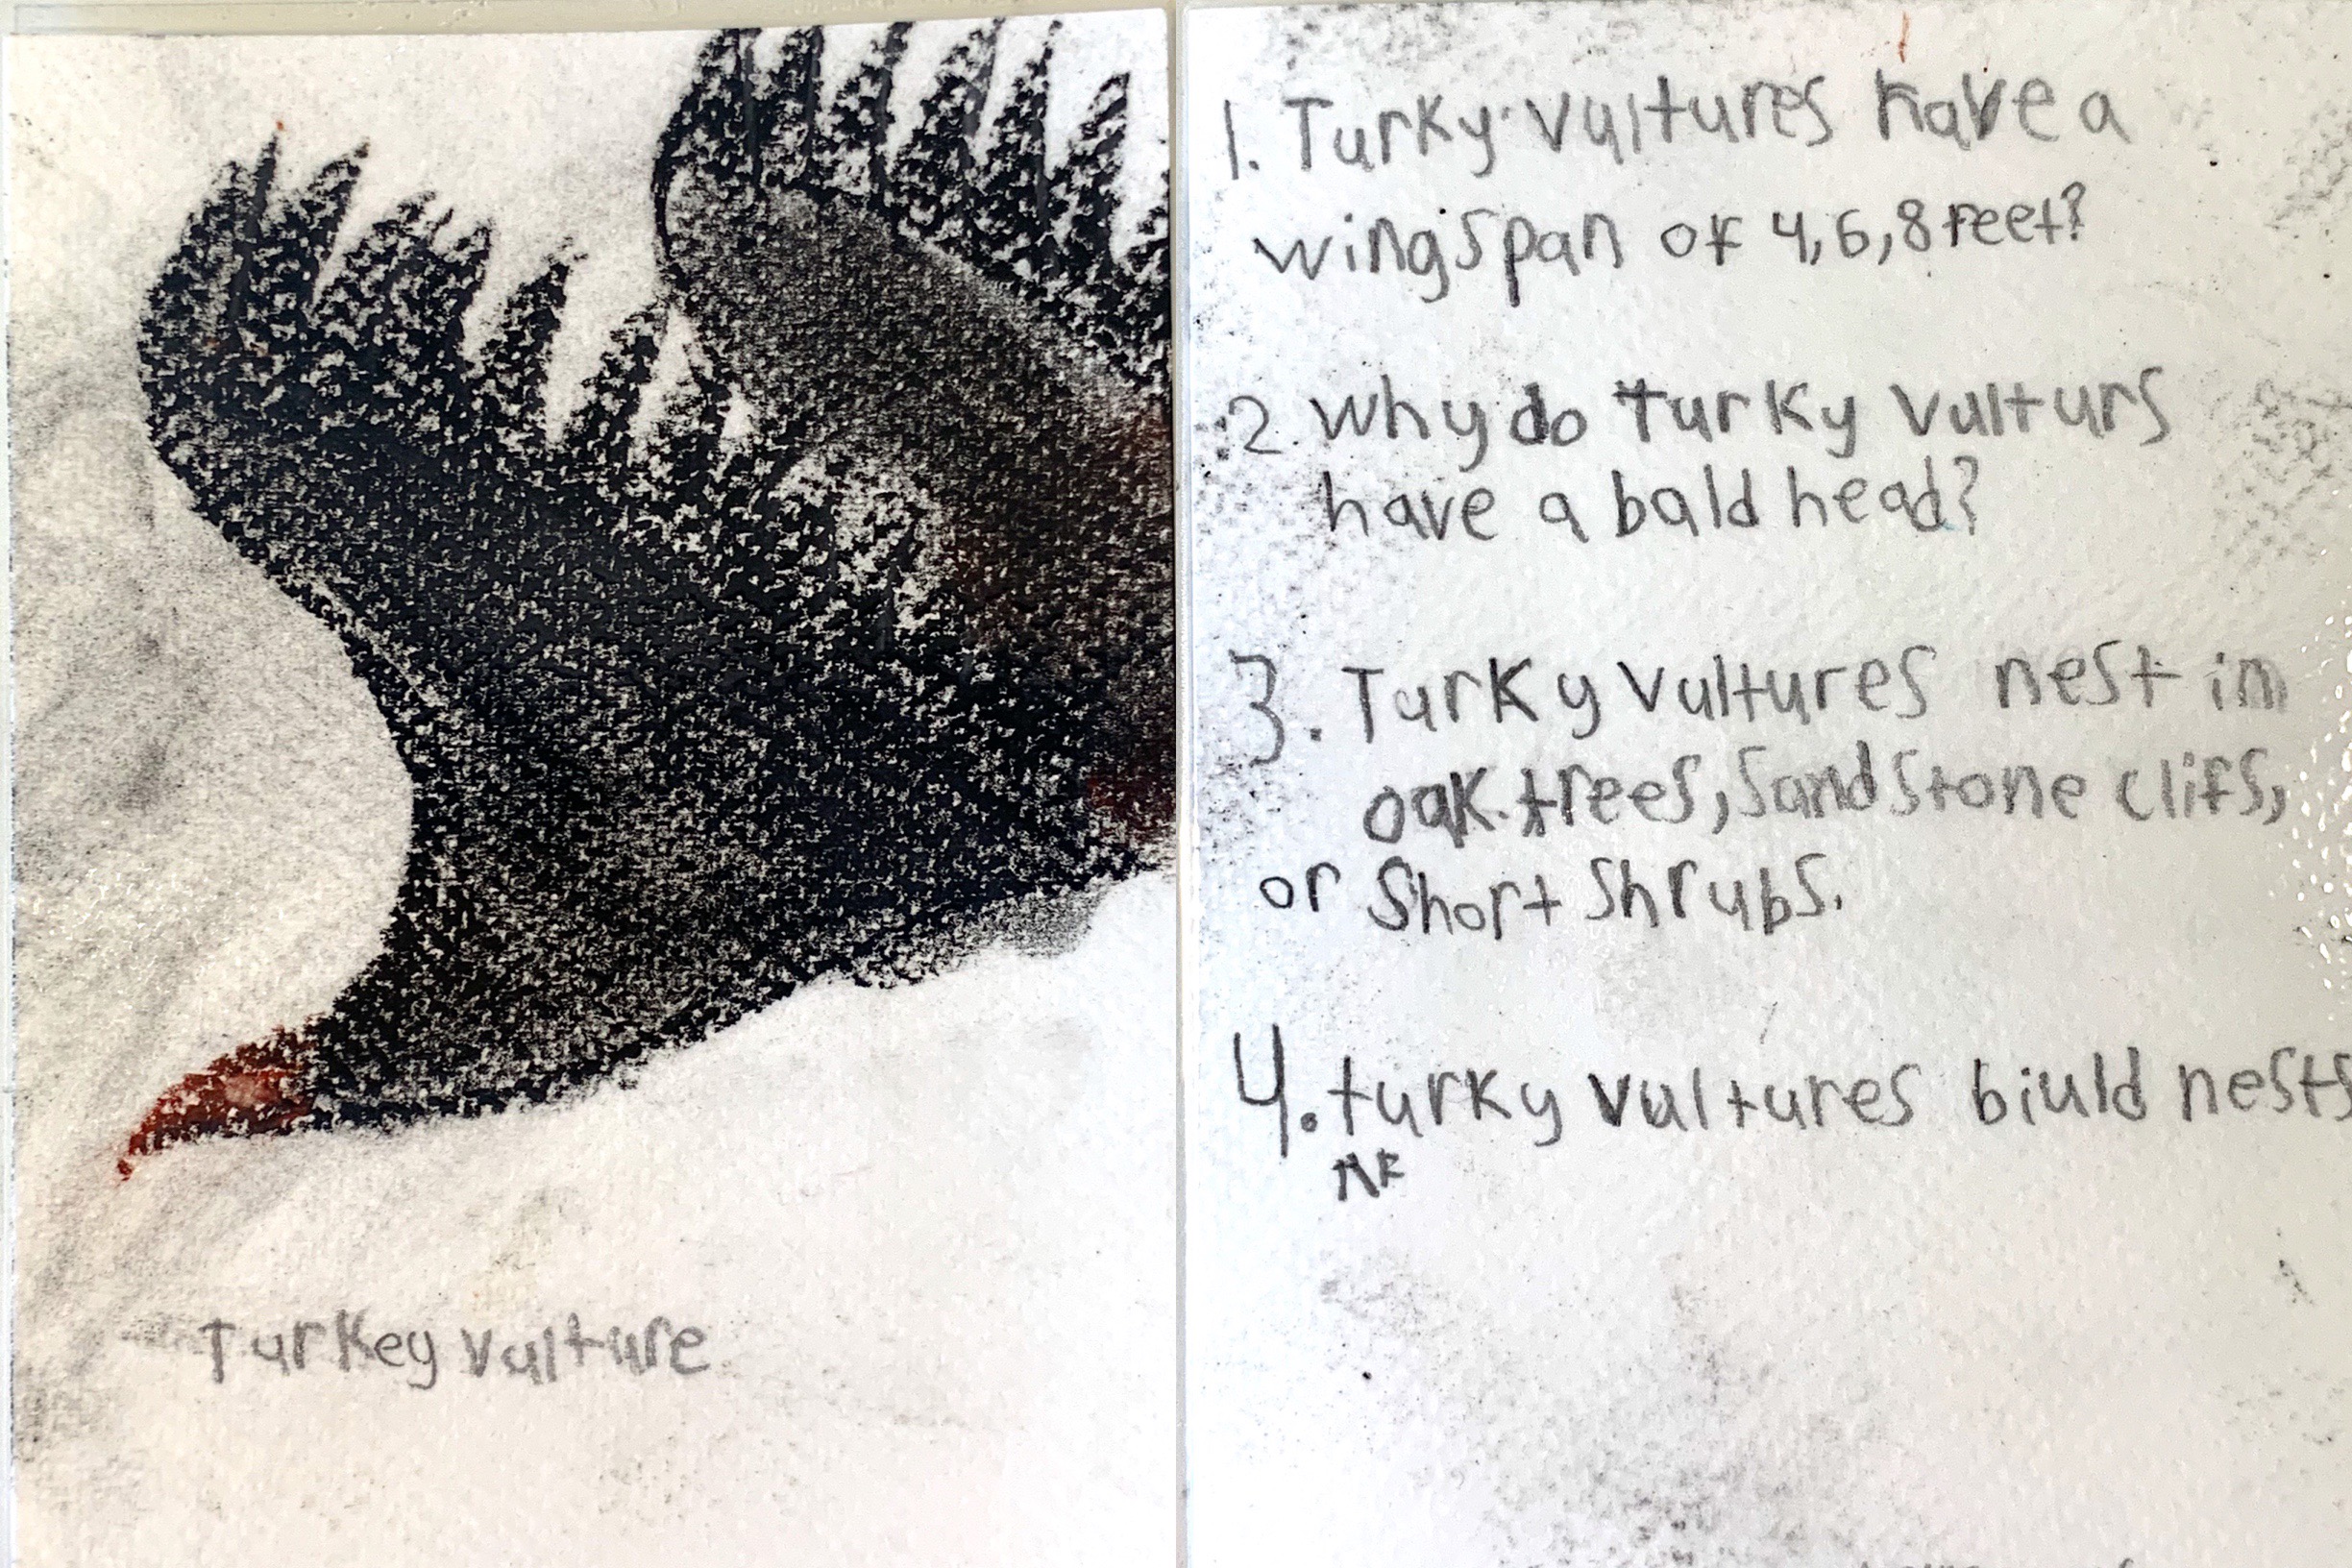 Turkey Vulture
1. Turky Vultures have a
wingspan of 4,6,8 feet?
2. Why do Turky Vulturs
have a bald head?
3. Turky Vultures nest in
oak trees, Sandstone clifs,
or Short Shrubs.
4. turky Vultures biuld nests